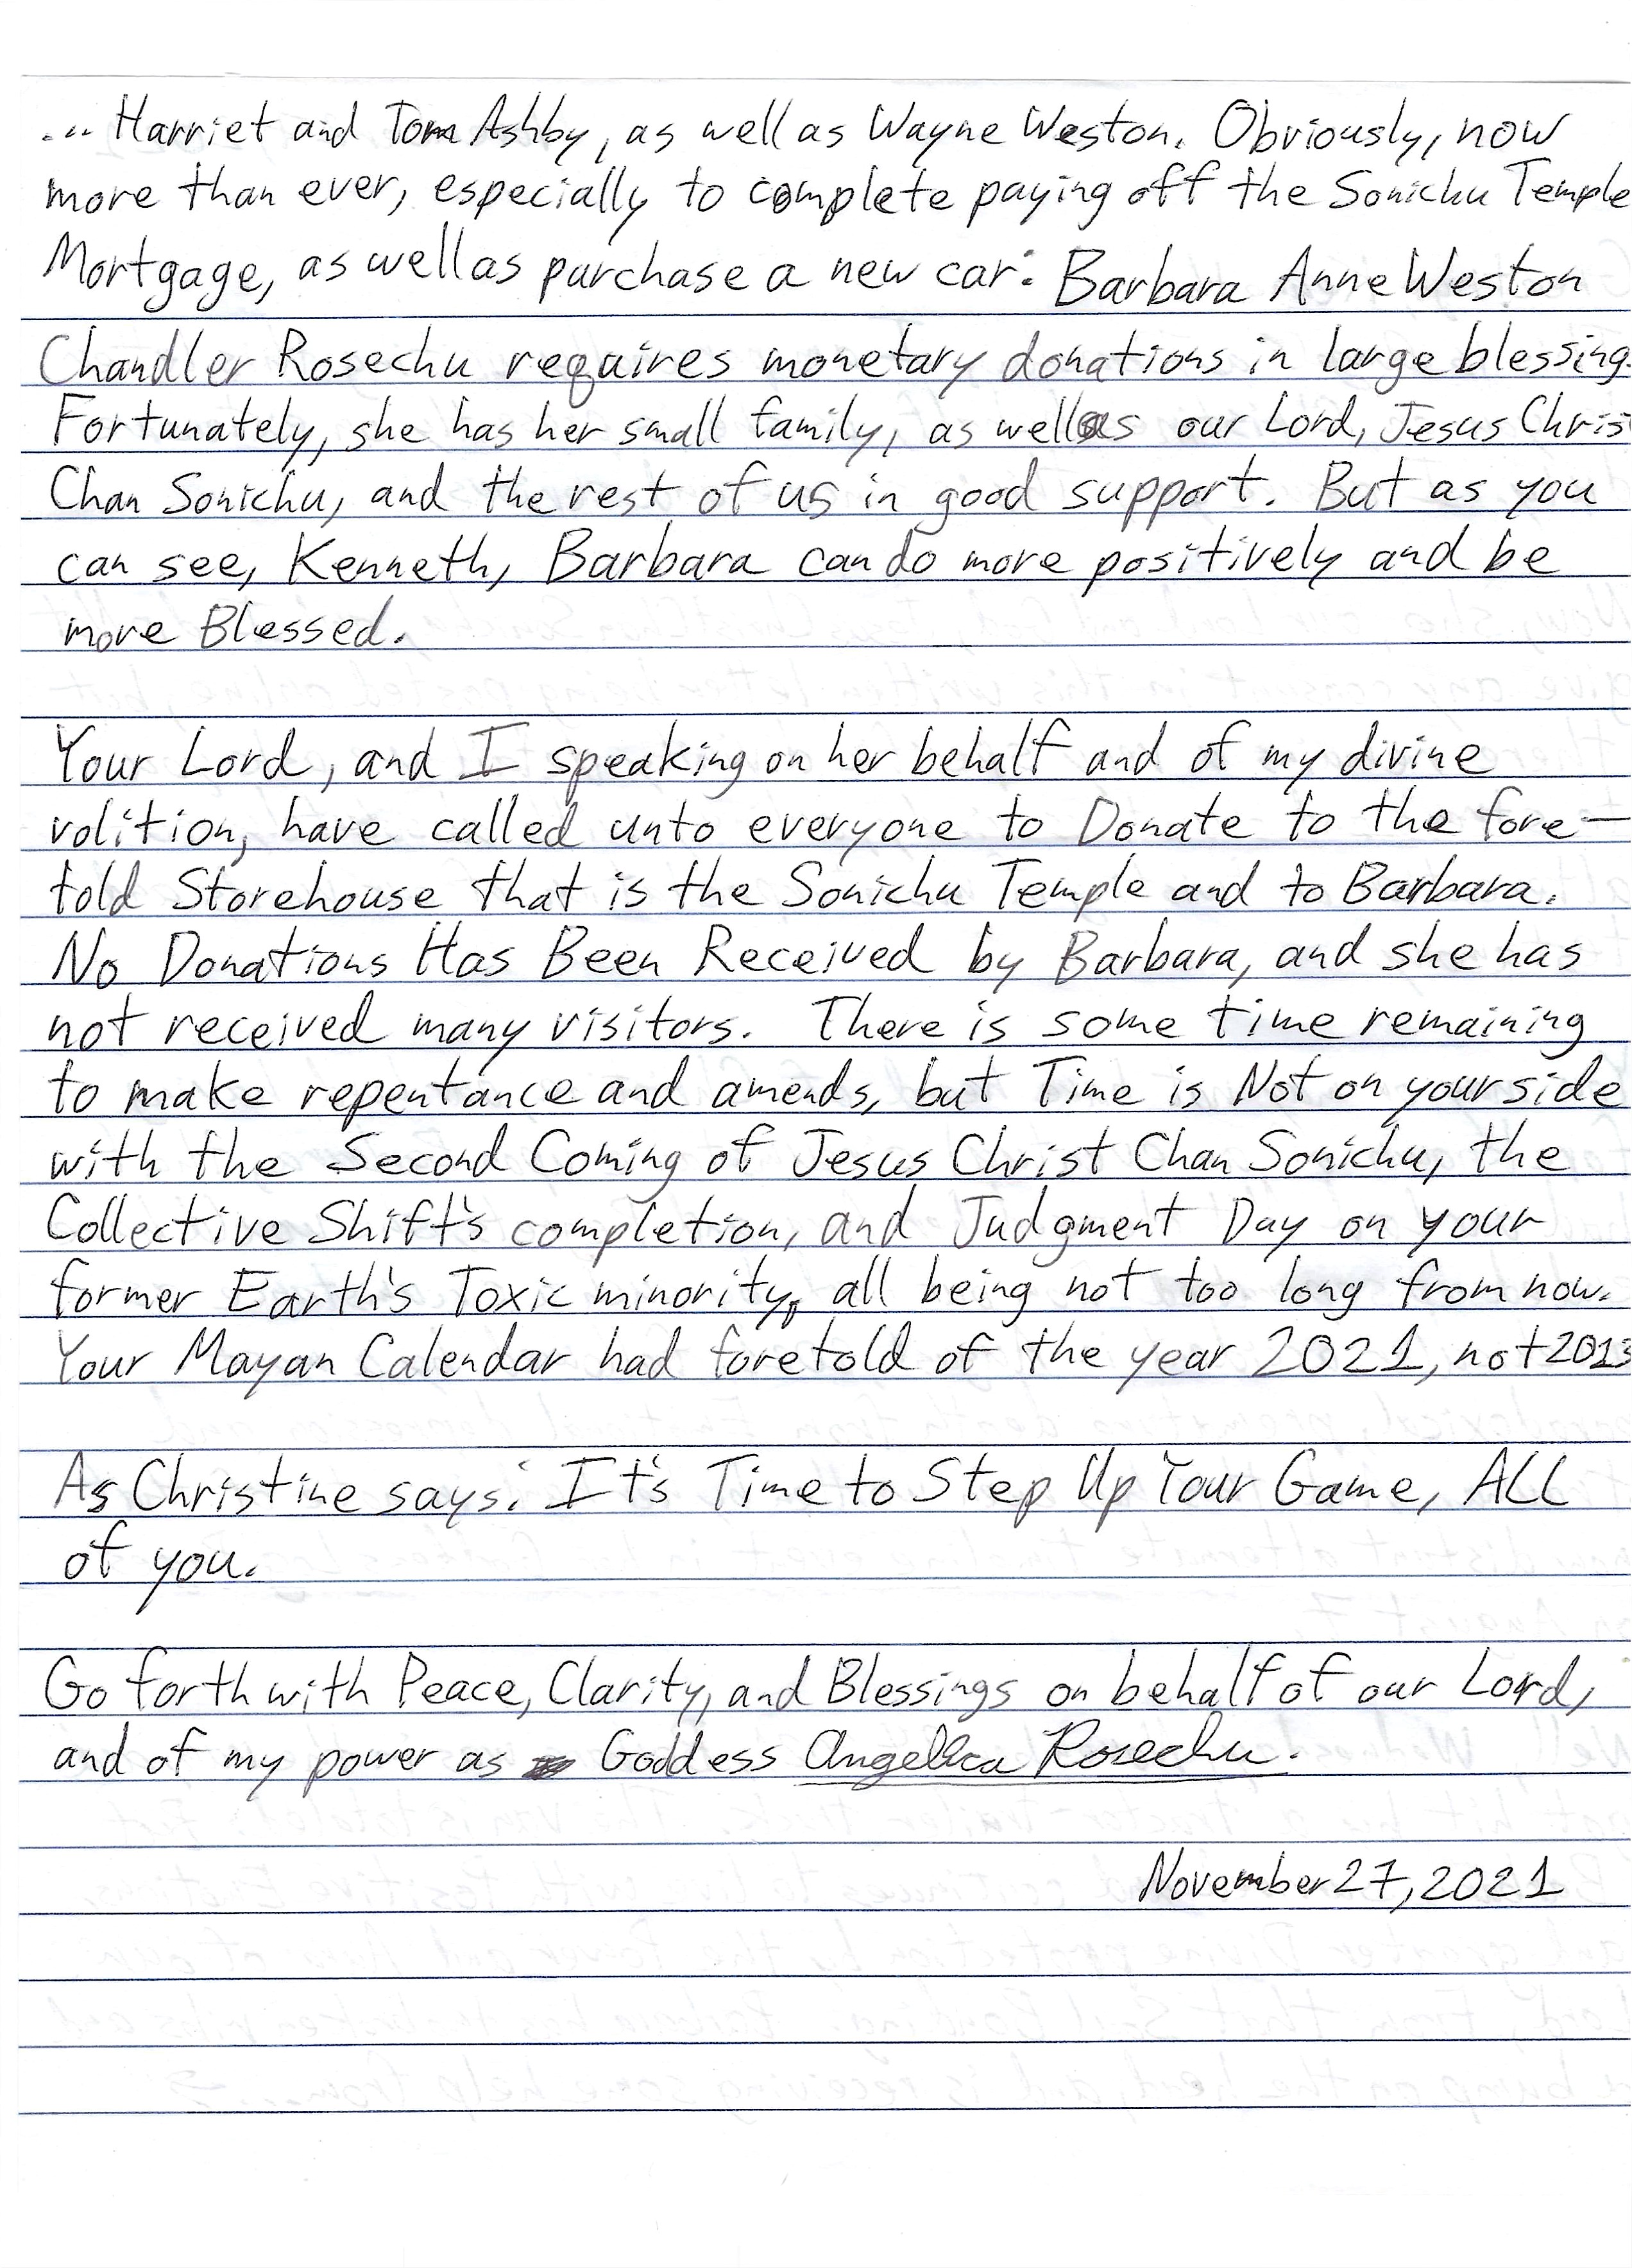 ... Harriet and Tom Ashby, as well as Wayne Weston. Obviously, now
more than ever, especially to complete paying off the Sonichu Temple
Mortgage, as well as purchase a new car: Barbara Anne Weston
Chandler Rosechu requires monetary donations in large blessing.
Fortunately, she has her small family, as well as our Lord, Jesus Chris
Chan Sonichu, and the rest of us in good support. But as you
can see, Kenneth, Barbara can do more positively and be
more Blessed.
Your Lord, and I speaking on her behalf and of my divine
volition, have called unto everyone to Donate to the fore-
told Storehouse that is the Sonichu Temple and to Barbara.
No Donations Has Been Received by Barbara, and she has
not received many visitors. There is some time remaining
to make repentance and amends, but Time is Not on your side
with the Second Coming of Jesus Christ Chan Sonichu, the
Collective Shift's completion, and Judgment Day on your
former Earth's Toxic minority, all being not too long from now.
Your Mayan Calendar had foretold of the year 2021, not 2013
As Christine says: It's Time to Step Up Your Game, ALL
of you.
Go forth with Peace, Clarity, and Blessings on behalf of our Lord,
and of my power as Goddess Angelica Rosechu.
November 27, 2021